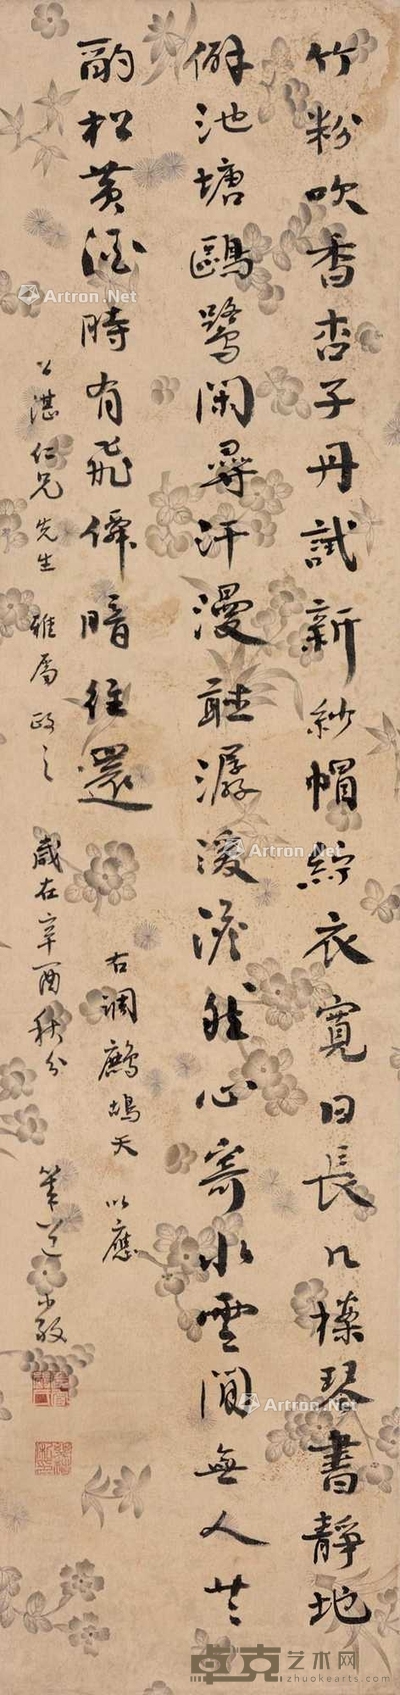 竹粉吹香杏子丹試新紗帽紵衣寬日長几榻琴書靜地
僻池塘鷗鷺閑尋汗漫聽潺湲澹然心寄水雲間無人共
酌松黃酒時有飛僊暗往還
右調鷓鴣天 以應
公湛仁兄先生 雅屬政之 歲在辛酉秋分
Artron.Net
卓克艺术网
www.zhuokearts.com